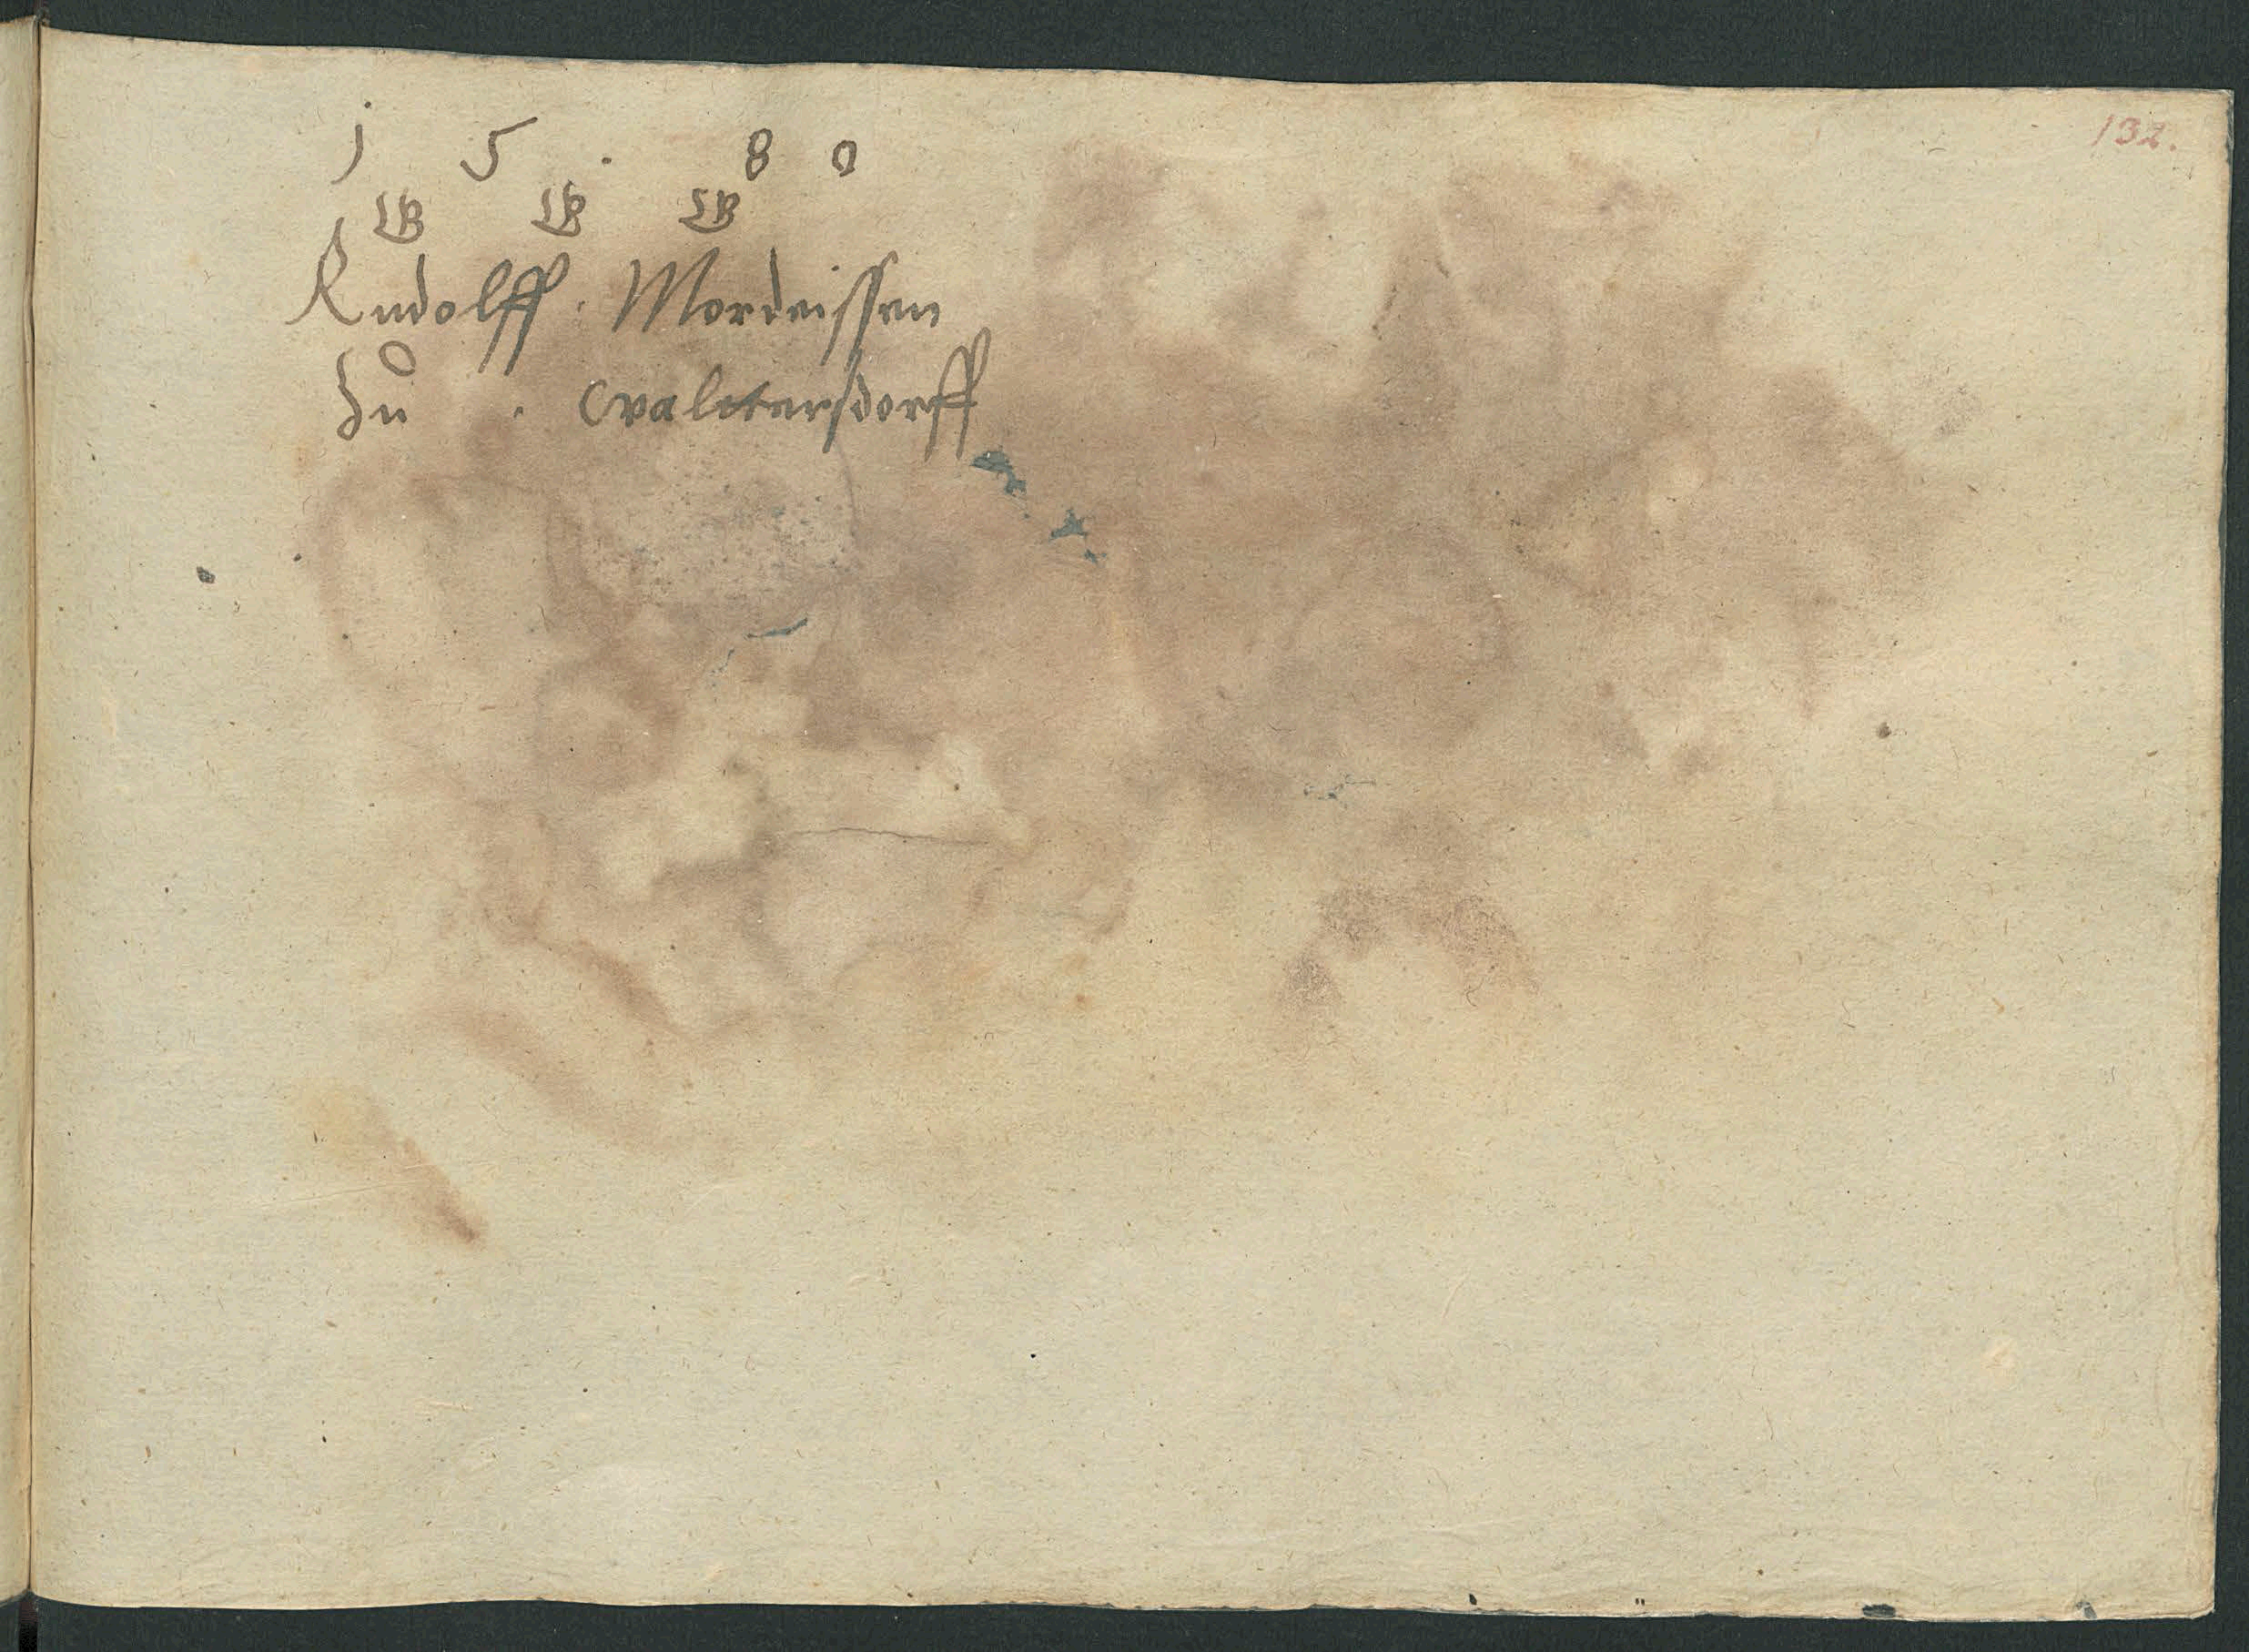 132.
1 5 . 8 0
W W W
Rudolff . Mordeissen
Zů . Waltersdorff